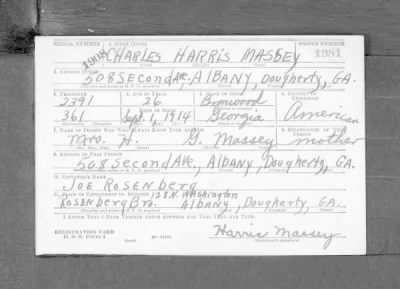 SERIAL NUMBER 1. NAME (Print) ORDER NUMBER
1908 CHARLES HARRIS MASSEY 1981
2. ADDRESS (Print)
508 Second Ave, ALBANY, Dougherty, GA.
3. TELEPHONE 4. AGE IN YEARS 5. PLACE OF BIRTH 6. COUNTRY OF CITIZENSHIP
2391 26 Bronwood
DATE OF BIRTH
361 Sept. 1, 1914 Georgia American
7. NAME OF PERSON WHO WILL ALWAYS KNOW YOUR ADDRESS 8. RELATIONSHIP OF THAT PERSON
Mrs. H. G. Massey mother
9. ADDRESS OF THAT PERSON
508 Second Ave, Albany, Dougherty, GA.
10. EMPLOYER'S NAME
JOE ROSENberg
11. PLACE OF EMPLOYMENT OR BUSINESS 128 N. Washington
ROSENberg Bro. Albany, Dougherty, GA.
I AFFIRM THAT I HAVE VERIFIED ABOVE ANSWERS AND THAT THEY ARE TRUE.
REGISTRATION CARD
D. S. S. FORM 1 (over) Harris Massey
(Registrant's signature)